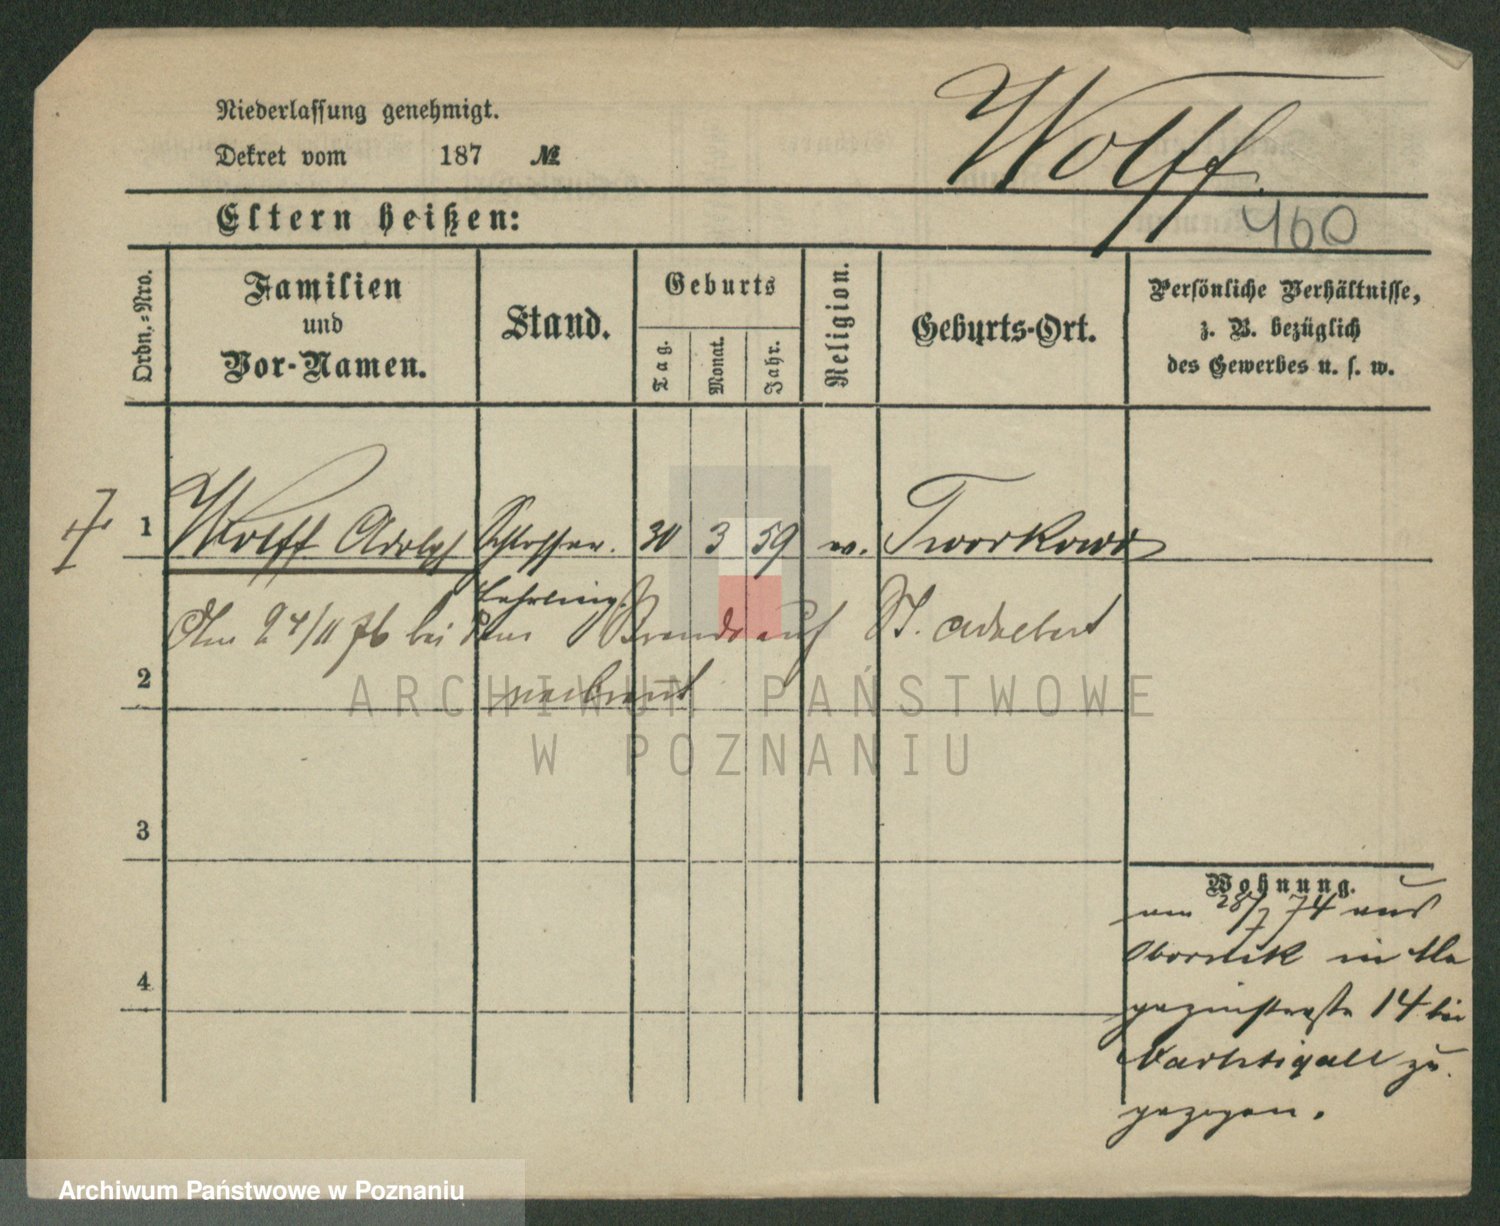 Niederlassung genehmigt.
Dekret vom 187 №
Wolff.
Eltern heißen:
460
Ordn.-Nro.
Familien
und
Vor-Namen.
Stand.
Geburts
Tag.
Monat.
Jahr.
Religion.
Geburts-Ort.
Persönliche Verhältnisse,
z. B. bezüglich
des Gewerbes u. s. w.
1 Wolff Adolph Schlosser. 30 3 59 ev. Tworkowo
Lehrling.
Am 24/11 76 bei dem Brande auf St. Adalbert
2 verbrannt
ARCHIWUM PAŃSTWOWE
W POZNANIU
3
4
Wohnung.
am 28/7 74 aus
Obornik in Ma
gazinstraße 14 bei
Nachtigall zu
gezogen.
Archiwum Państwowe w Poznaniu